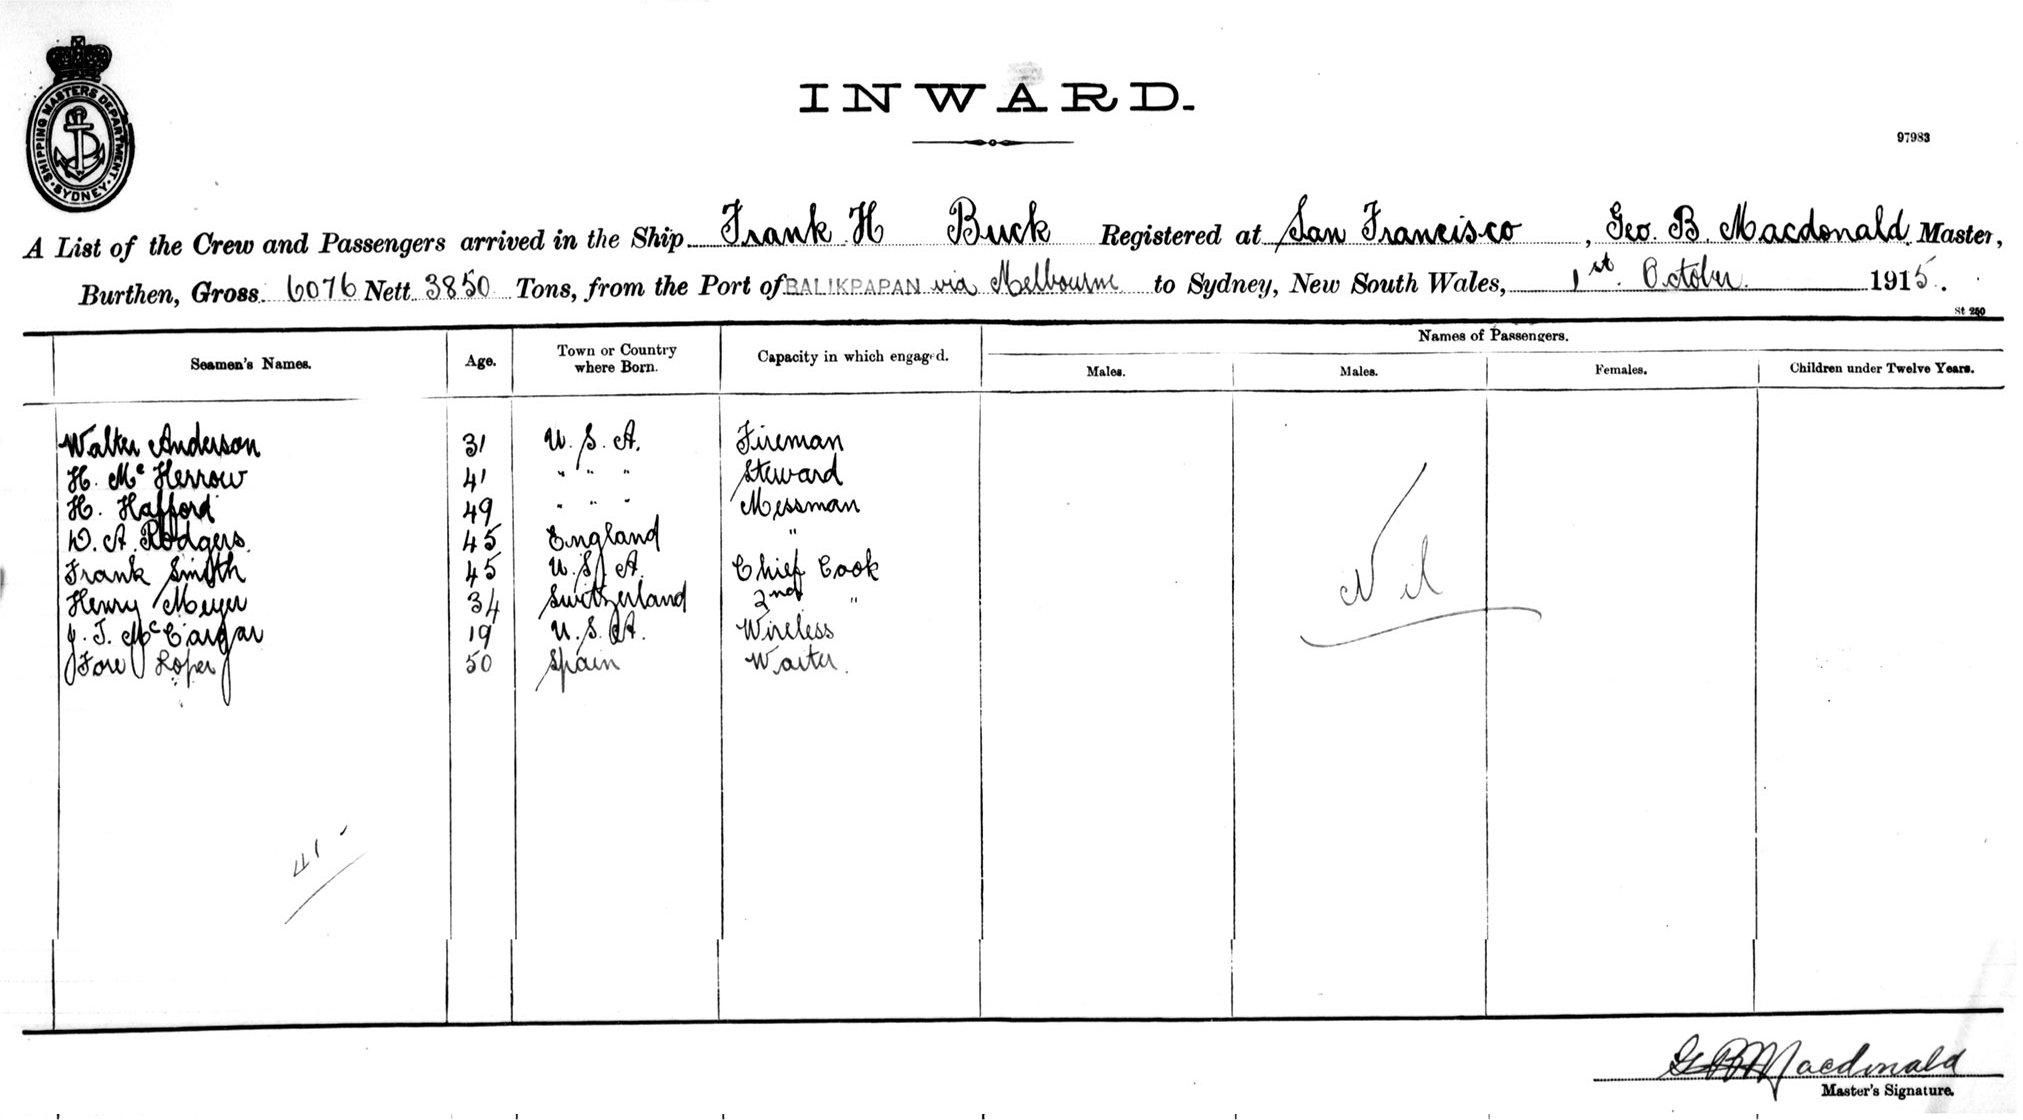 SHIPPING MASTERS DEPARTMENT. SYDNEY.
INWARD.
97983
A List of the Crew and Passengers arrived in the Ship Frank H Buck Registered at San Francisco, Geo. B. Macdonald Master,
Burthen, Gross 6076 Nett 3850 Tons, from the Port of BALIKPAPAN via Melbourne to Sydney, New South Wales, 1st October 1915.
St 250
Seamen's Names. Age. Town or Country where Born. Capacity in which engaged. Names of Passengers.
Males. Males. Females. Children under Twelve Years.
Walter Anderson 31 U.S.A. Fireman
H. McHerrow 41 " " " Steward
H. Hafford 49 " " " Messman
D. A. Rodgers 45 England "
Frank Smith 45 U.S.A. Chief Cook
Henry Meyer 34 Switzerland 2nd "
J. T. McCargar 19 U.S.A. Wireless
Loper 50 Spain Waiter.
Nil
41
G B Macdonald
Master's Signature.